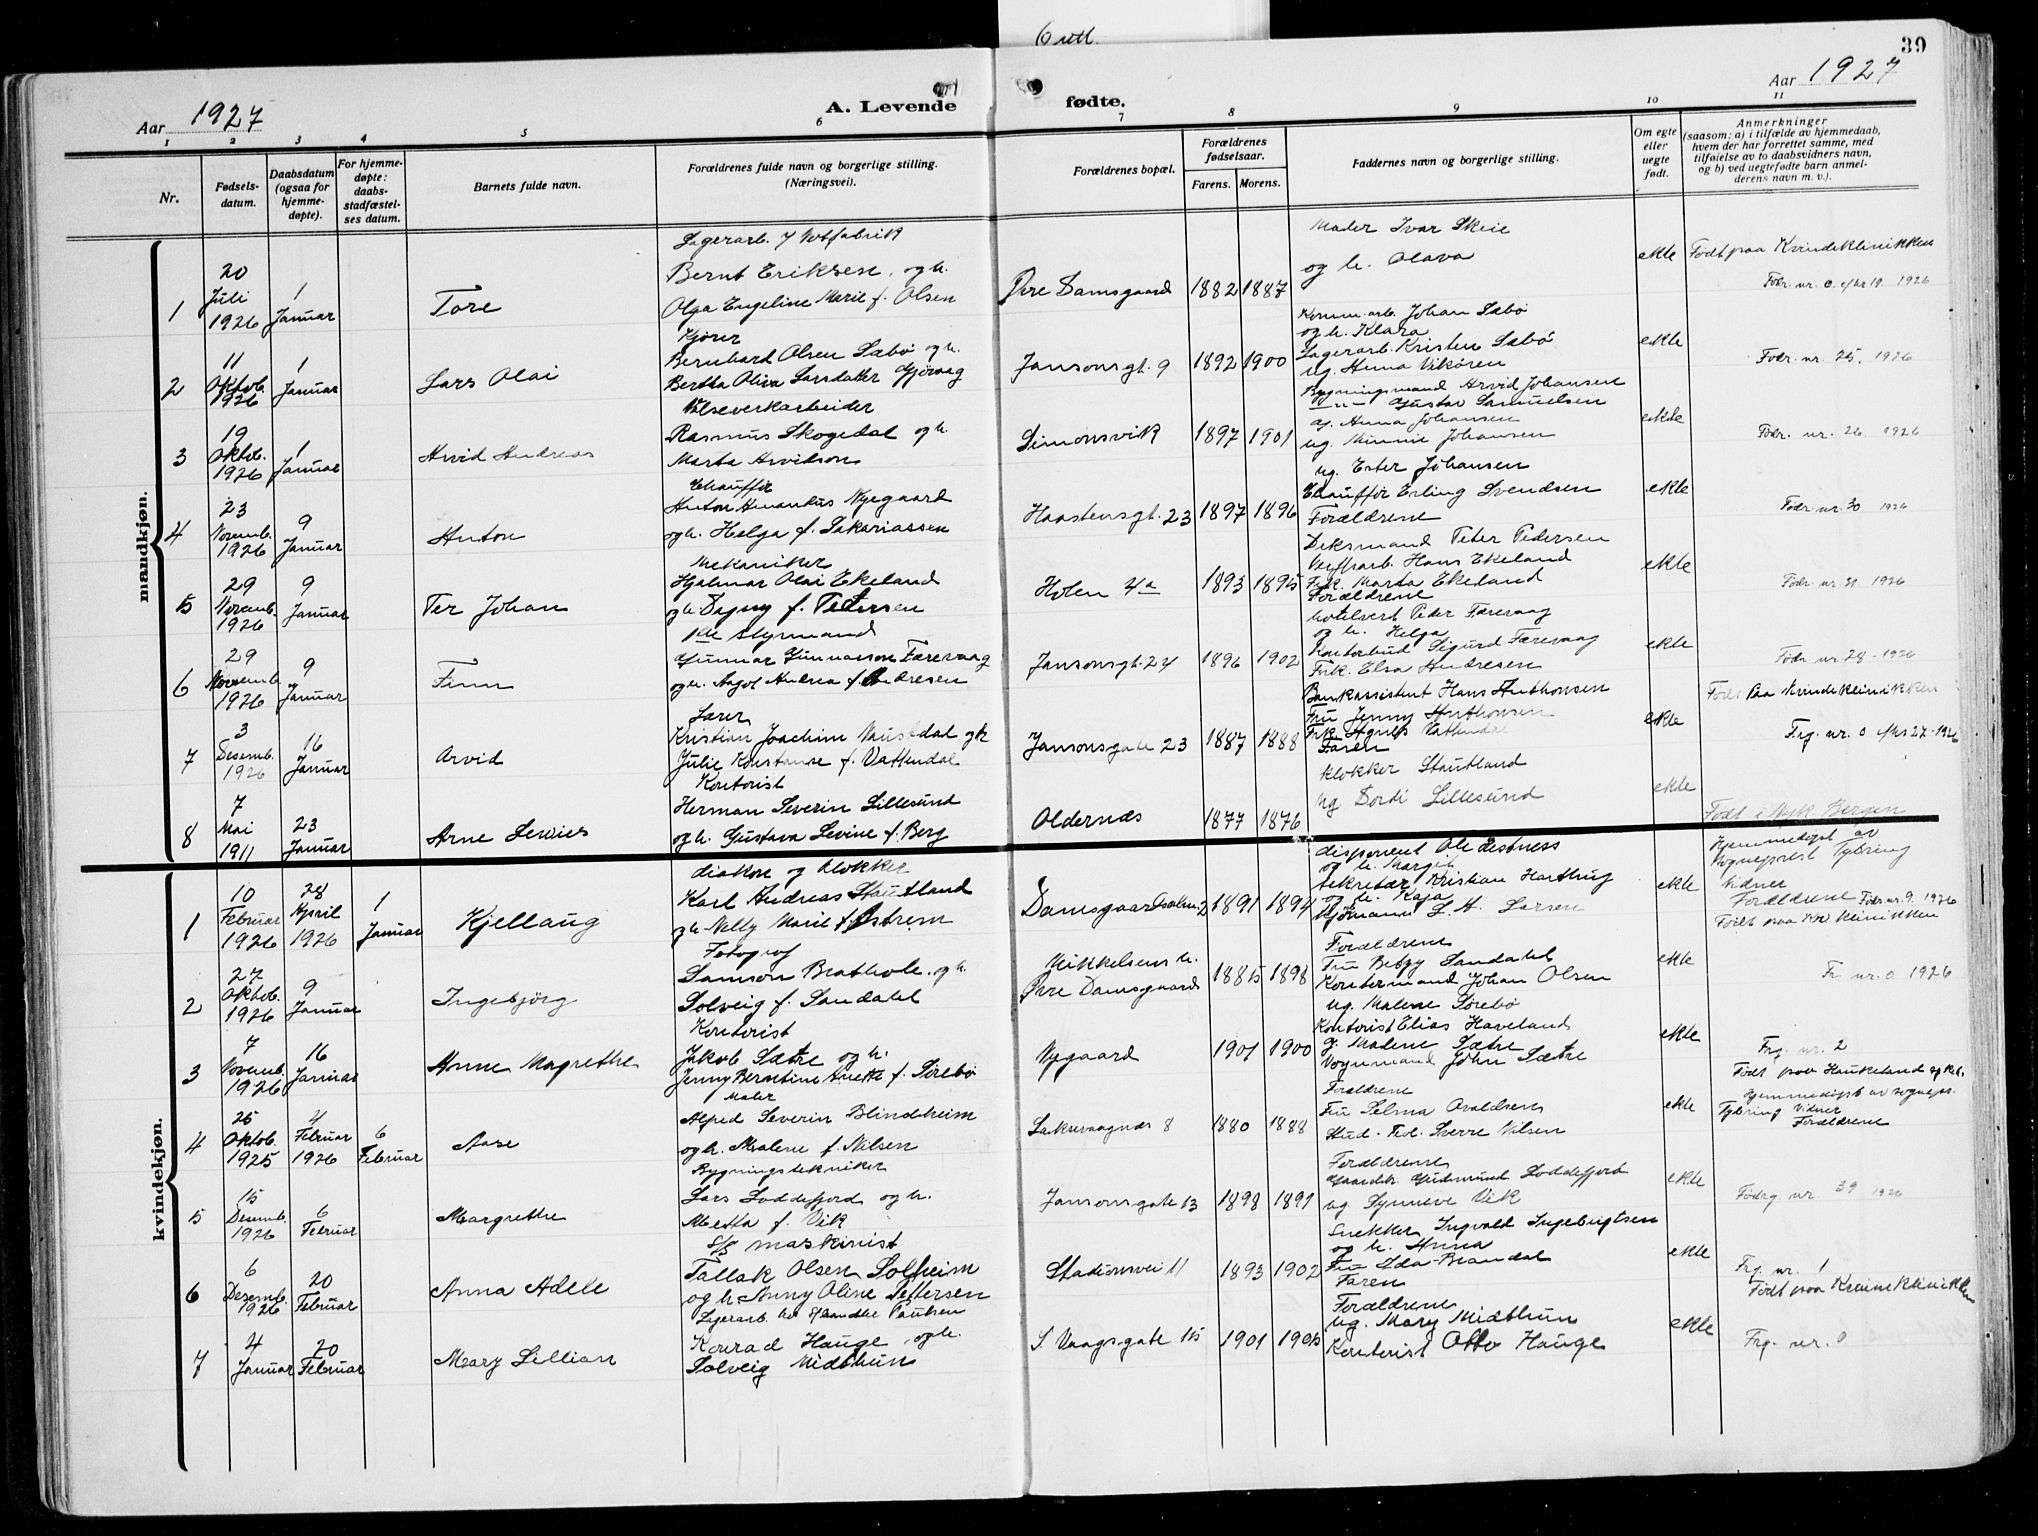 6 utl.
39
Aar 1927
A. Levende
fødte.
Aar 1927
1 2 3 4 5 6 7 8 9 10 11
Nr.
Fødsels-
datum.
Daabsdatum
(ogsaa for
hjemme-
døpte).
For hjemme-
døpte:
daabs-
stadfæstel-
ses datum.
Barnets fulde navn.
Forældrenes fulde navn og borgerlige stilling.
(Næringsvei).
Forældrenes bopæl.
Forældrenes
fødselsaar.
Farens. Morens.
Faddernes navn og borgerlige stilling.
Om egte
eller
uegte
født.
Anmerkninger
(saasom: a) i tilfælde av hjemmedaab,
hvem der har forrettet samme, med
tilføielse av to daabsvidners navn,
og b) ved uegtefødte barn anmel-
derens navn m. v.).
mandkjøn.
1
20
Juli
1926
1
Januar
Tore
Lagerarb. Notfabrik
Bernt Eriksen. og h.
Olga Engeline Marie f. Olsen
Øvre Damsgaard
1882 1887
Maler Ivar Skeie
og h. Olava
ekte
Født paa Kvindeklinikken
Fødr. nr. 0 1926
2
11
Oktob.
1926
1
Januar
Lars Olai
Kjører
Bernhard Olsen Sæbø og h.
Bertha Oliva Larsdatter Gjøvaag
Jansonsgt. 9
1892 1900
Komm. arb. Johan Sæbø
og h. Klara
Lagerarb. Kristen Sæbø
ug. Anna Vikøren
ekte
Fødr. nr. 25. 1926
3
19
Oktob.
1926
1
Januar
Arvid Andreas
Valseverkarbeider
Rasmus Skogedal og h.
Marta Arvidson
Simonsvik
1897 1901
Bygningsmand Arvid Johansen
—"— Gustav Samuelsen
g. Anna Johansen
ug. Minnie Johansen
ug. Ester Johansen
ekte
Fødr. nr. 26. 1926
4
23
Novemb.
1926
9
Januar
Anton
Chauffør
Anton Amandus Nygaard
og h. Helga f. Sakariassen
Haastensgt. 23
1897 1896
Chauffør Erling Svendsen
Forældrene
ekte
Fødr. nr. 30 1926
5
29
Novemb.
1926
9
Januar
Per Johan
Mekaniker
Hjalmar Olai Ekeland
og h. Dagny f. Petersen
Holen 4a
1893 1895
Dæksmand Peter Pedersen
Verftsarb. Hans Ekeland
Frk. Marta Ekeland
Forældrene
ekte
Fødr. nr. 31 1926
6
29
Novemb.
1926
9
Januar
Finn
1ste styrmand
Gunnar Gunnarson Færevaag
og h. Aagot Andrea f. Andresen
Jansonsgt. 24
1896 1902
Hotelvert Peder Færevaag
og h. Helga
Kontorbud Sigurd Færevaag
Frk. Elsa Andresen
ekte
Fødr. nr. 28 - 1926
7
3
Desemb.
1926
16
Januar
Arvid
Lærer
Kristian Joachim Mustdal og h.
Julie Konstanse f. Vattendal
Jansonsgate 23
1887 1888
Bankassistent Hans Anthonsen
Fru Jenny Anthonsen
Frk. Agnes Vattendal
Faren
ekte
Født paa Kvindeklinikken
Frg. nr. 0 1926
8
7
Mai
1911
23
Januar
Arne Servies
Kontorist
Herman Severin Lillesund
og h. Gustava Levine f. Berg
Oldernæs
1877 1876
Klokker Stautland
ug. Dordi Lillesund
ekte
Født i Nyk. Bergen
kvindekjøn.
1
10
Februar
1926
28
April
1926
1
Januar
Kjellaug
diakon og klokker
Karl Andreas Stautland
og h. Nelly Marie f. Østrem
Damsgaardsalm. 2
1891 1894
disponent Ole Lestness
og h. Margit
Sekretær Kristian Harthug
og h. Kaja
Sjømand L. A. Larsen
ekte
Hjemmedøpt av
Sogneprest Tybring
Vidner
Forældrene Fødr nr. 9. 1926
Født paa Kv. klinikken
2
27
Oktob.
1926
9
Januar
Ingebjørg
Fotograf
Samson Brathole. og h.
Solveig f. Sandahl
Mikkelsens h.
Øvre Damsgaard
1885 1898
Forældrene
Fru Betzy Sandahl
Kontormand Johan Olsen
ug. Malene Sørebø
ekte
Fr. nr. 0 1926
3
7
Novemb.
1926
16
Januar
Anne Magrethe
Kontorist
Jakob Sætre og h.
Jenny Berntine Anette f. Sørebø
Nygaard
1901 1900
Kontorist Elias Haveland
g. Malene Sætre
Vognmand John Sætre
ekte
Frg. nr. 2
Født paa Haukeland sykeh.
4
25
Oktob.
1925
4
Februar
1926
6
Februar
Aase
Maler
Alfred Severin Blindheim
og h. Malene f. Nilsen
Laksevaagnæs 8
1880 1888
Forældrene
Fru Selma Osvaldsen
Stud. Tek. Sverre Nilsen
ekte
Hjemmedøpt av sognepr.
Tybring Vidner
Forældrene
5
15
Desemb.
1926
6
Februar
Margrethe
Bygningstekniker
Lars Loddefjord og h.
Metta f. Vik
Jansonsgate 13
1898 1891
Forældrene
Gaardbr. Gudmund Loddefjord
ug. Synneve Vik
ekte
Fødrg. nr. 39 1926
6
6
Desemb.
1926
20
Februar
Anna Adele
S/S maskinist
Tallak Olsen Solheim
og h. Anny Oline Pettersen
Stadionsvei 11
1893 1902
Snekker Ingvald Ingebrigtsen
og h. Anna
Fru Ida Brandal
Faren
ekte
Frg. nr. 1
Født paa Kvinneklinikken
7
4
Januar
20
Februar
Mary Lillian
Lagerarb. hos Paulsen
Konrad Hauge. og h.
Solveig Midthun
S. Vaagsgate 115
1901 1905
Forældrene
ug. Mary Midthun
Kontorist Otto Hauge
ekte
Frg. nr. 0